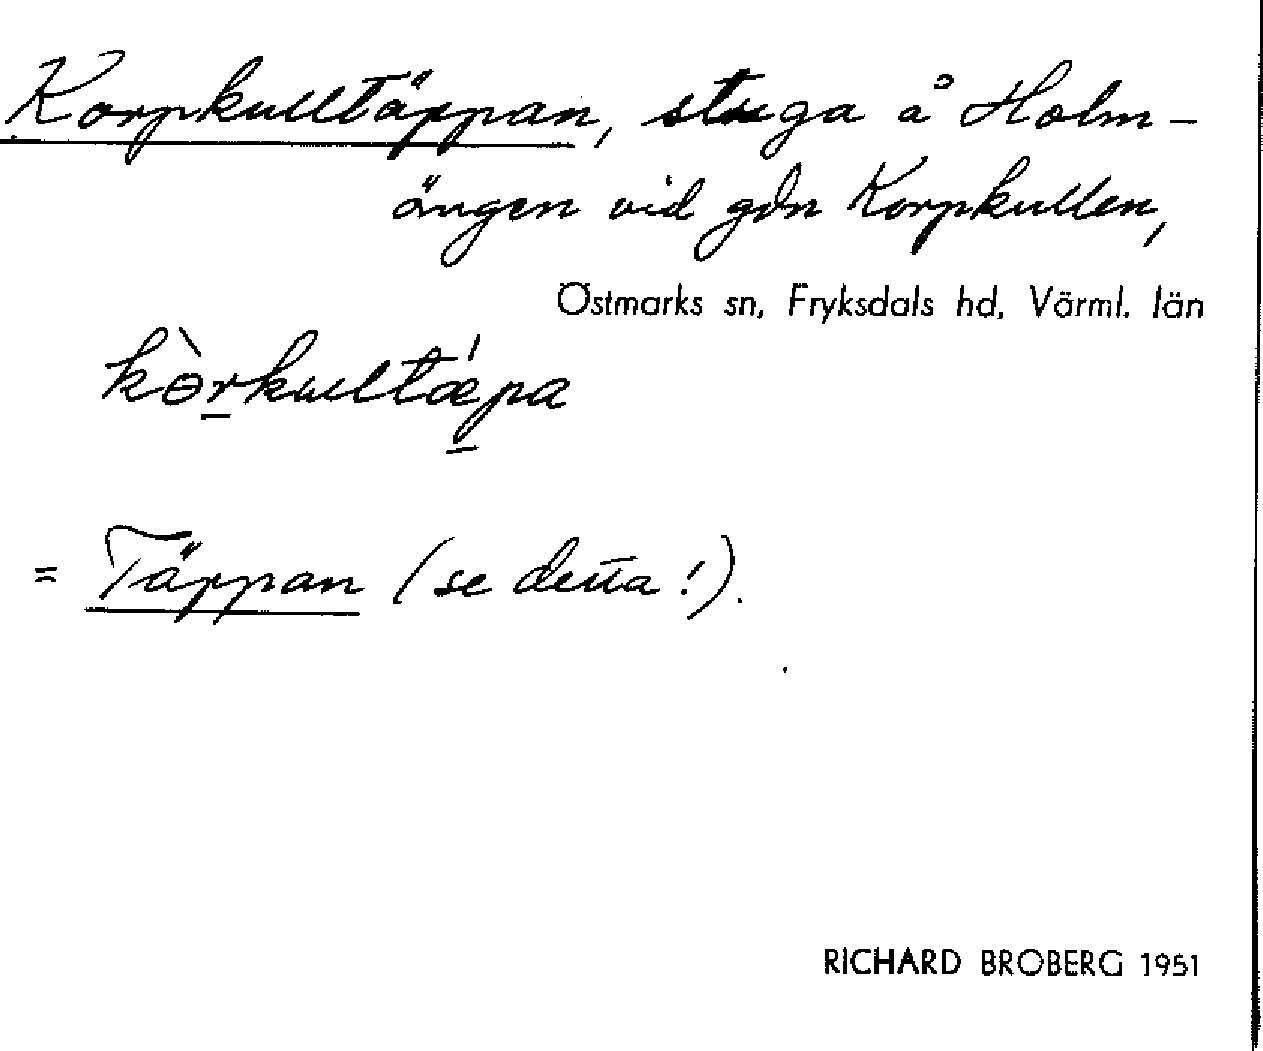 Korpkulltäppan, stuga å Holm-
ängen vid gdn Korpkullen,
Östmarks sn, Fryksdals hd, Värml. län
kɵ̀r̲kulltǽp̲a
= Täppan (se detta!).
RICHARD BROBERG 1951